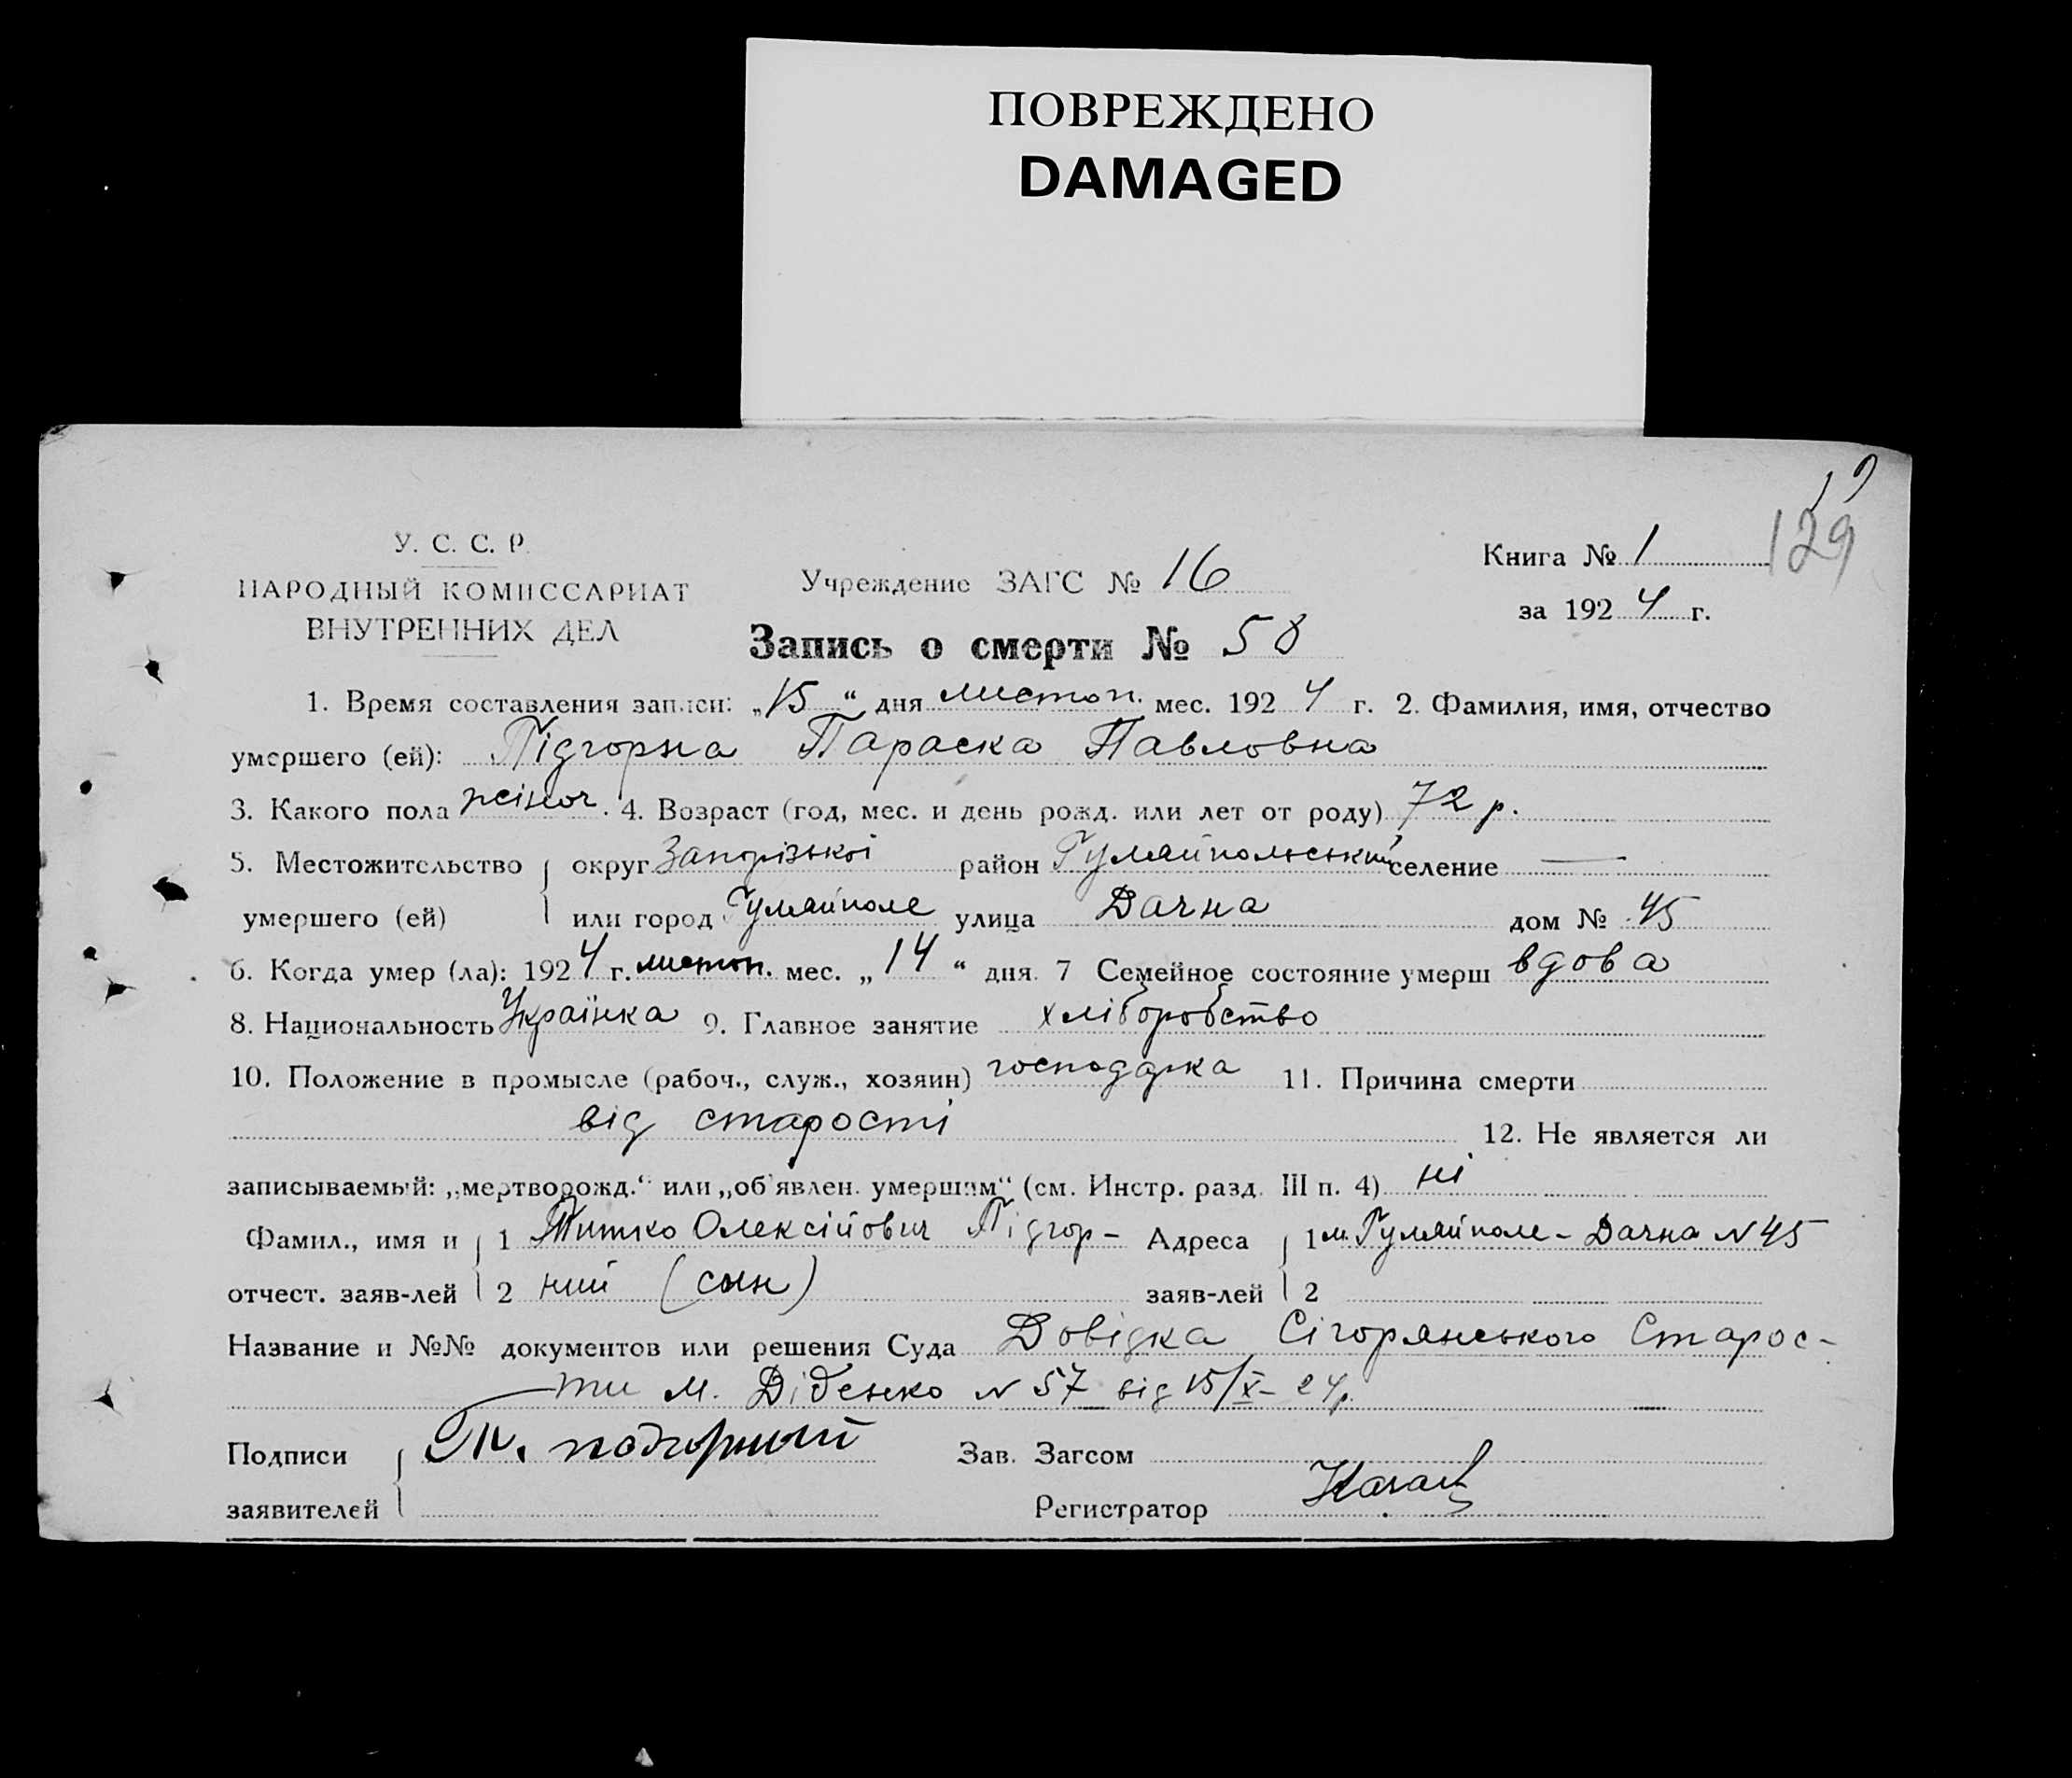 ПОВРЕЖДЕНО
DAMAGED
19
129
У. С. С. Р.
НАРОДНЫЙ КОМИССАРИАТ
ВНУТРЕННИХ ДЕЛ
Учреждение ЗАГС № 16
Книга № 1
за 1924 г.
Запись о смерти № 58
1. Время составления записи: „15“ дня листоп. мес. 1924 г. 2. Фамилия, имя, отчество
умершего (ей): Підгорна Параска Павловна
3. Какого пола жіноч. 4. Возраст (год, мес. и день рожд. или лет от роду) 72 р.
5. Местожительство округ Запорізької район Гуляйпольський селение —
умершего (ей) или город Гуляйполе улица Дачна дом № 45
6. Когда умер (ла): 1924 г. листоп. мес. „14“ дня. 7 Семейное состояние умерш вдова
8. Национальность Українка 9. Главное занятие хліборобство
10. Положение в промысле (рабоч., служ., хозяин) господарка 11. Причина смерти
від старости 12. Не является ли
записываемый: „мертворожд.“ или „об'явлен. умершим“ (см. Инстр. разд. III п. 4) ні
Фамил., имя и 1 Титко Олексійович Підгор- Адреса 1 м. Гуляйполе - Дачна N 45
отчест. заяв-лей 2 ний (сын) заяв-лей 2
Название и №№ документов или решения Суда Довідка Старос-
ти М. Діденко N 57 від 15/X- 24р.
Подписи Т. подгорный Зав. Загсом
заявителей Регистратор